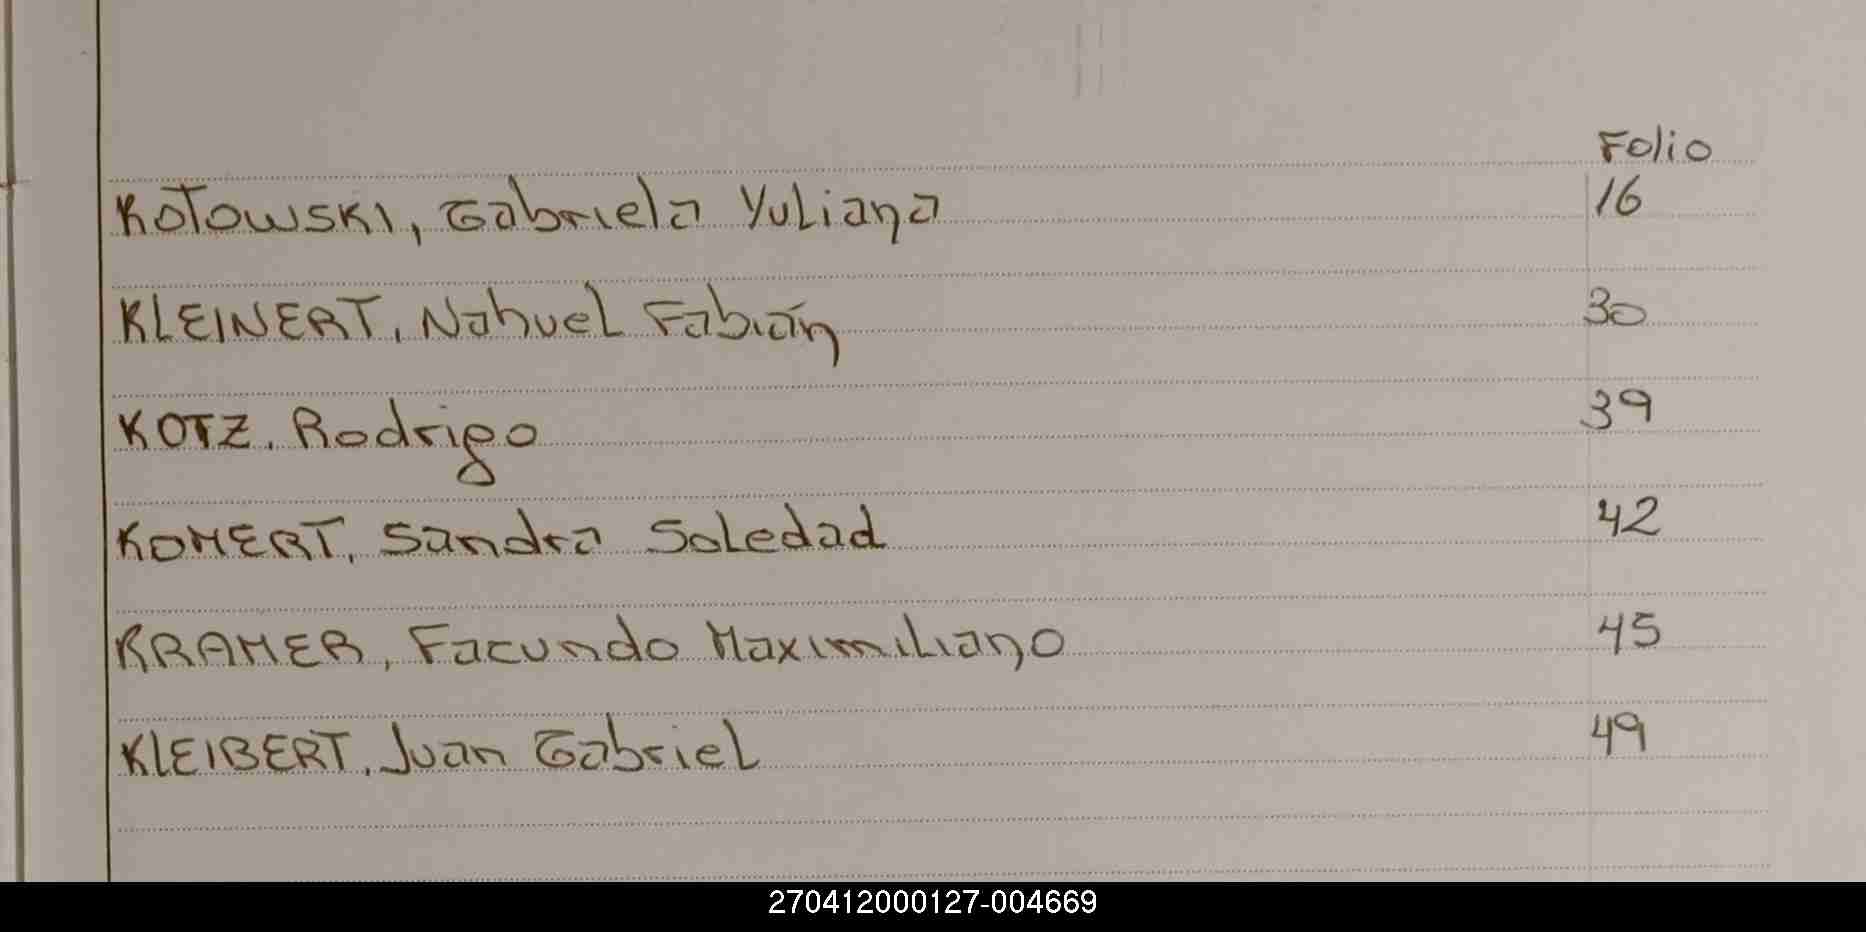 Folio
KOTOWSKI, Gabriela Yuliana 16
KLEINERT, Nahuel Fabián 30
KOTZ, Rodrigo 39
KOMERT, Sandra Soledad 42
KRAMER, Facundo Maximiliano 45
KLEIBERT, Juan Gabriel 49
270412000127-004669